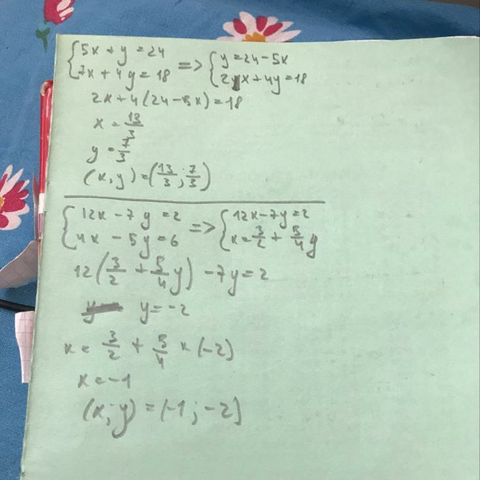 {5x + y = 24 => {y = 24 - 5x
{7x + 4y = 18 {2x + 4y = 18
2x + 4(24 - 5x) = 18
x = 13/3
y = 7/3
(x, y) = (13/3 ; 7/3)
{12x - 7y = 2 => {12x - 7y = 2
{4x - 5y = 6 {x = 3/2 + 5/4 y
12(3/2 + 5/4 y) - 7y = 2
y = -2
x = 3/2 + 5/4 × (-2)
x = -1
(x; y) = (-1; -2)